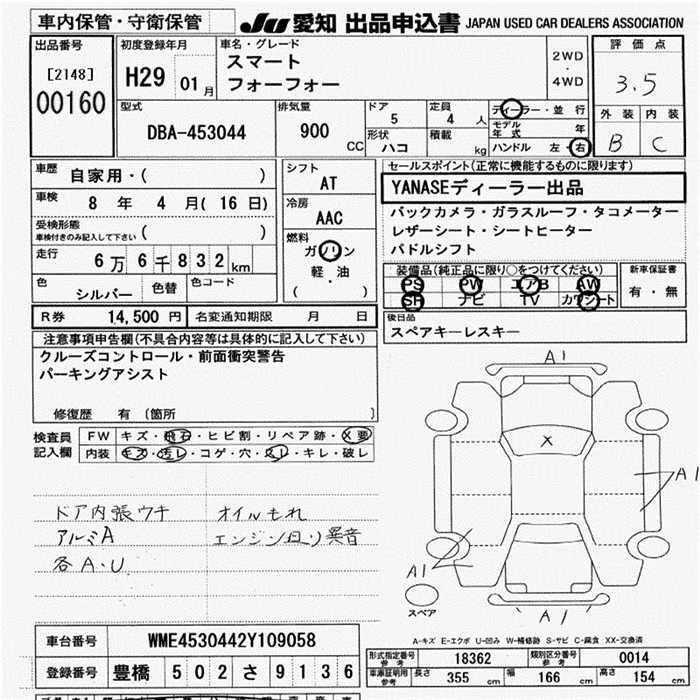 車内保管・守衛保管
JU 愛知 出品申込書 JAPAN USED CAR DEALERS ASSOCIATION
出品番号
[2148]
00160
初度登録年月
H29 01 月
車名・グレード
スマート
フォーフォー
2WD
・
4WD
評価点
3.5
外装 内装
B C
型式
DBA-453044
排気量
900 CC
ドア
5
定員
4 人
形状
ハコ
積載
kg
ディーラー・並行
モデル年式 年
ハンドル 左・右
車歴
自家用・( )
車検
8 年 4 月( 16 日)
受検形態
車検付きのみ記入して下さい ( )
走行
6万6千832km
色
シルバー
色替
色コード
シフト
AT
冷房
AAC
燃料
ガソリン
軽・油
( )
セールスポイント(正常に機能するものに限ります)
YANASEディーラー出品
バックカメラ・ガラスルーフ・タコメーター
レザーシート・シートヒーター
パドルシフト
装備品(純正品に限り○をつけてください)
PS PW エアB AW
SR ナビ TV カワシート
新車保証書
有・無
R券 14,500 円 名変通知期限 月 日
後日品
スペアキーレスキー
注意事項申告欄(不具合内容等は具体的に記入して下さい)
クルーズコントロール・前面衝突警告
パーキングアシスト
修復歴 有 (箇所 )
検査員
記入欄
FW キズ・飛石・ヒビ割・リペア跡・X要
内装 キズ・汚レ・コゲ・穴・スレ・キレ・破レ
ドア内張ウキ
アルミA
各A・U
オイルもれ
エンジン回り異音
A1
X
A1
A1
A1
スペア
A-キズ E-エクボ U-凹み W-補修跡 S-サビ C-腐食 XX-交換済
車台番号 WME4530442Y109058
登録番号 豊橋 502 さ 9136
形式指定番号
参考
18362
類別区分番号
参考
0014
車庫証明用
参考
長さ 355 cm 幅 166 cm 高さ 154 cm